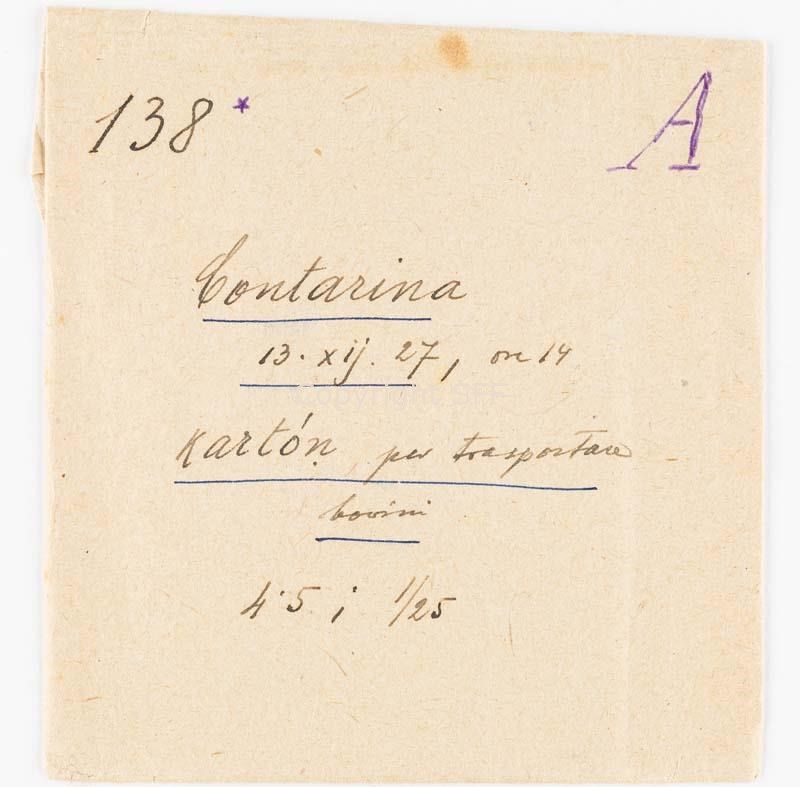 138* A
Contarina
13. xij. 27, ore 14
kartóṇ per trasportare
bovini
4·5 ; 1/25